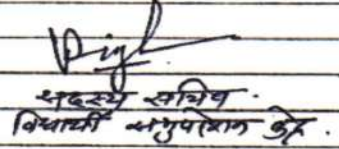 सदस्य सचिव.
विद्यार्थी समुपदेशन केंद्र.